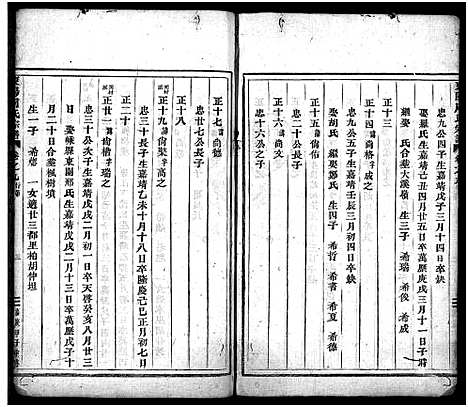 忠九公四子生嘉靖戊子三月十四日卒缺
娶嚴氏生嘉靖己丑四月廿五日卒萬曆庚戌三月十一日子
時 氏合葬大溪嶺 生三子 希瑞 希俊 希成
正十四 尙格 字成之
忠九公五子生嘉靖壬辰三月初四日卒缺
娶胡氏 繼鄭氏 生四子 希哲 希耆 希夏 希德
正十五 尙佑
忠十公之子
正十六 尙德
忠十六公之子
正十八
忠廿七公長子
正十九 尙榮 字高之
忠三十公長子生嘉靖乙未十月十八日卒隆慶己巳正月初七日
正二十
正廿一 尙 字瑞之
忠三十公次子生嘉靖戊戌二月初一日卒天啓癸亥八月廿三
日 娶練縣東園鄭氏生嘉靖戊戌二月十三日卒萬曆戊子十
月二十日合葬桃樹墳
生一子 希 一女適廿三都里柏胡仲垣